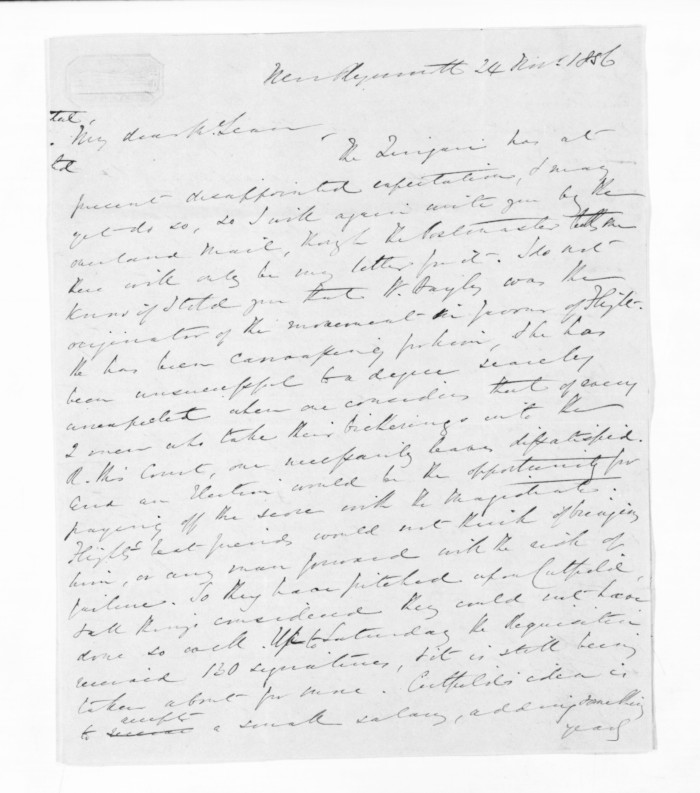 New Plymouth 24 Nov. 1856
tal,
My dear McLean,
td
The Zingari has at
present disappointed expectation, & may
yet do so, so I will again write you by the
overland Mail, though the Postmaster tells me
there will only be my letter in it. I do not
know if I told you that W. Bayley was the
originator of the movement in favour of Flight.
He has been canvassing for him, & he has
been unsuccessful to a degree scarcely
unexpected when one considers that of every
2 men who take their bickerings into the
R. Mts Court, one necessarily leaves dissatisfied.
And an Election would be the opportunity for
paying off the score with the Magistrate.
Flight's best friends would not think of bringing
him, or any man forward with the risk of
failure. So they have pitched upon Cutfield,
& all things considered they could not have
done so well. Up to Saturday the Requisition
received 130 signatures, & it is still being
taken about for more. Cutfield's idea is
accept
to a small salary, adding something